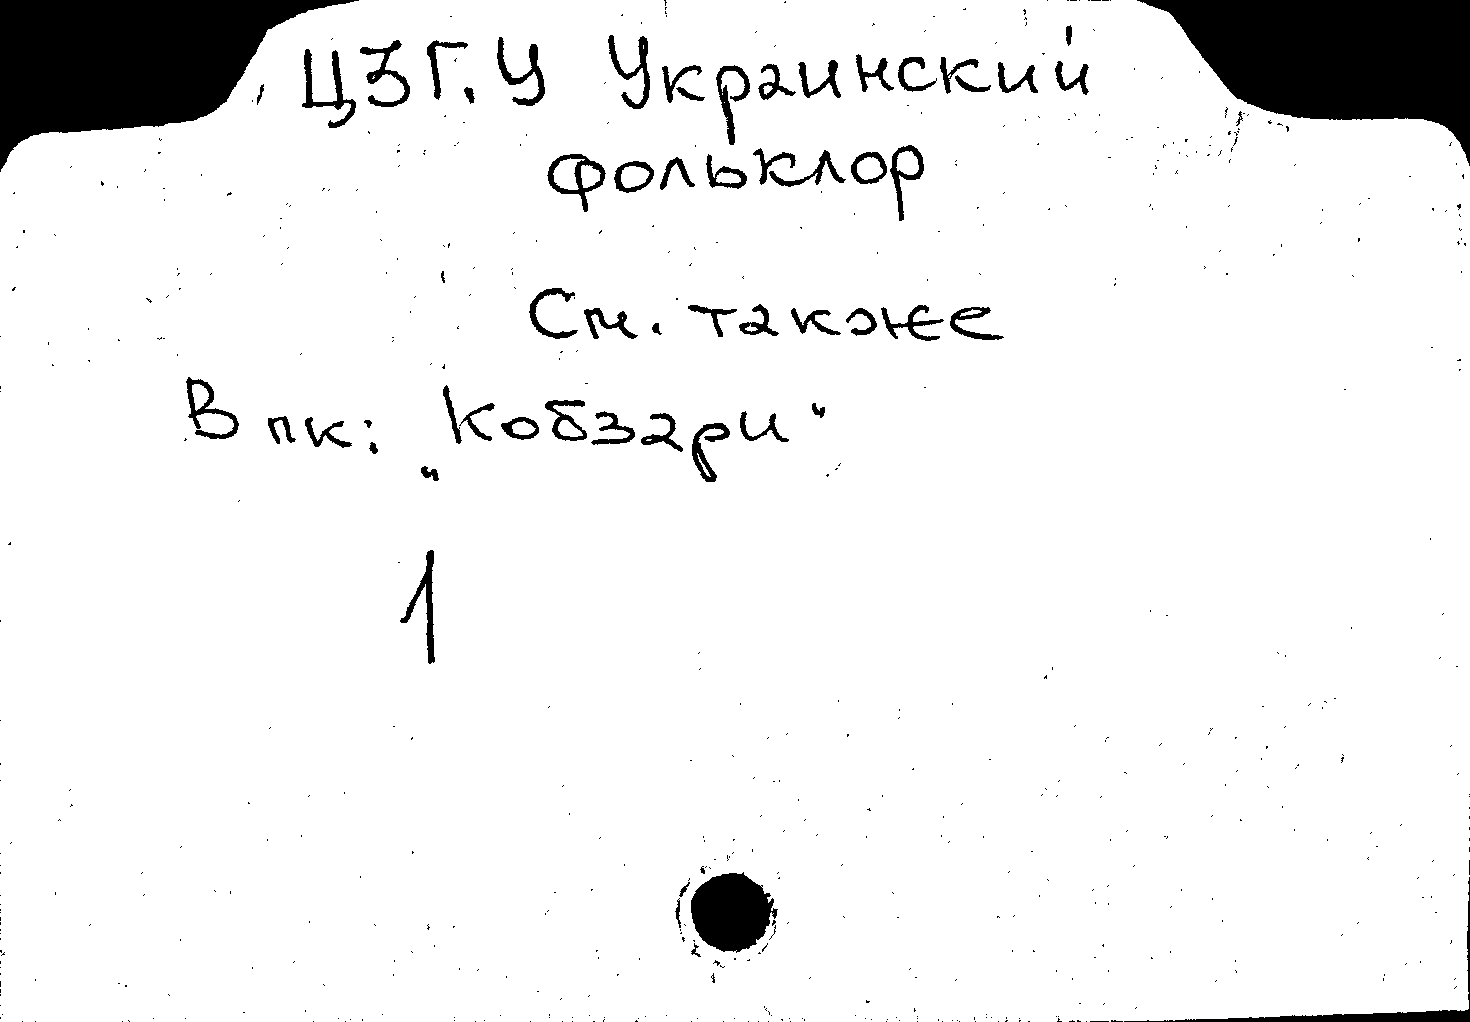 ЦЗГ.У Украинский
фольклор
См. также
В пк: „Кобзари“
1